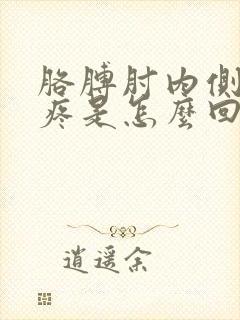 胳膊肘内側
疼是怎麼回
逍遥余